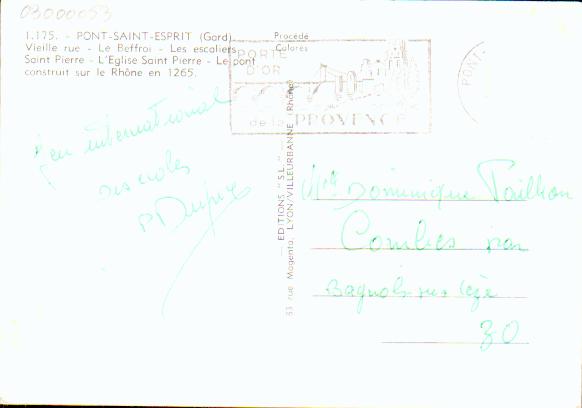 03000053
1.175. - PONT-SAINT-ESPRIT (Gard)
Vieille rue - Le Beffroi - Les escaliers
Saint Pierre - L'Eglise Saint Pierre - Le pont
construit sur le Rhône en 1265.
Procédé
Colorés
PORTE
D'OR
de la PROVENCE
PONT-
international
des écoles
P Dupuy
EDITIONS "S.L."
83 rue Magenta, LYON/VILLEURBANNE (Rhône)
Mlle Dominique Taillan
Combes par
Bagnols sur Cèze
30